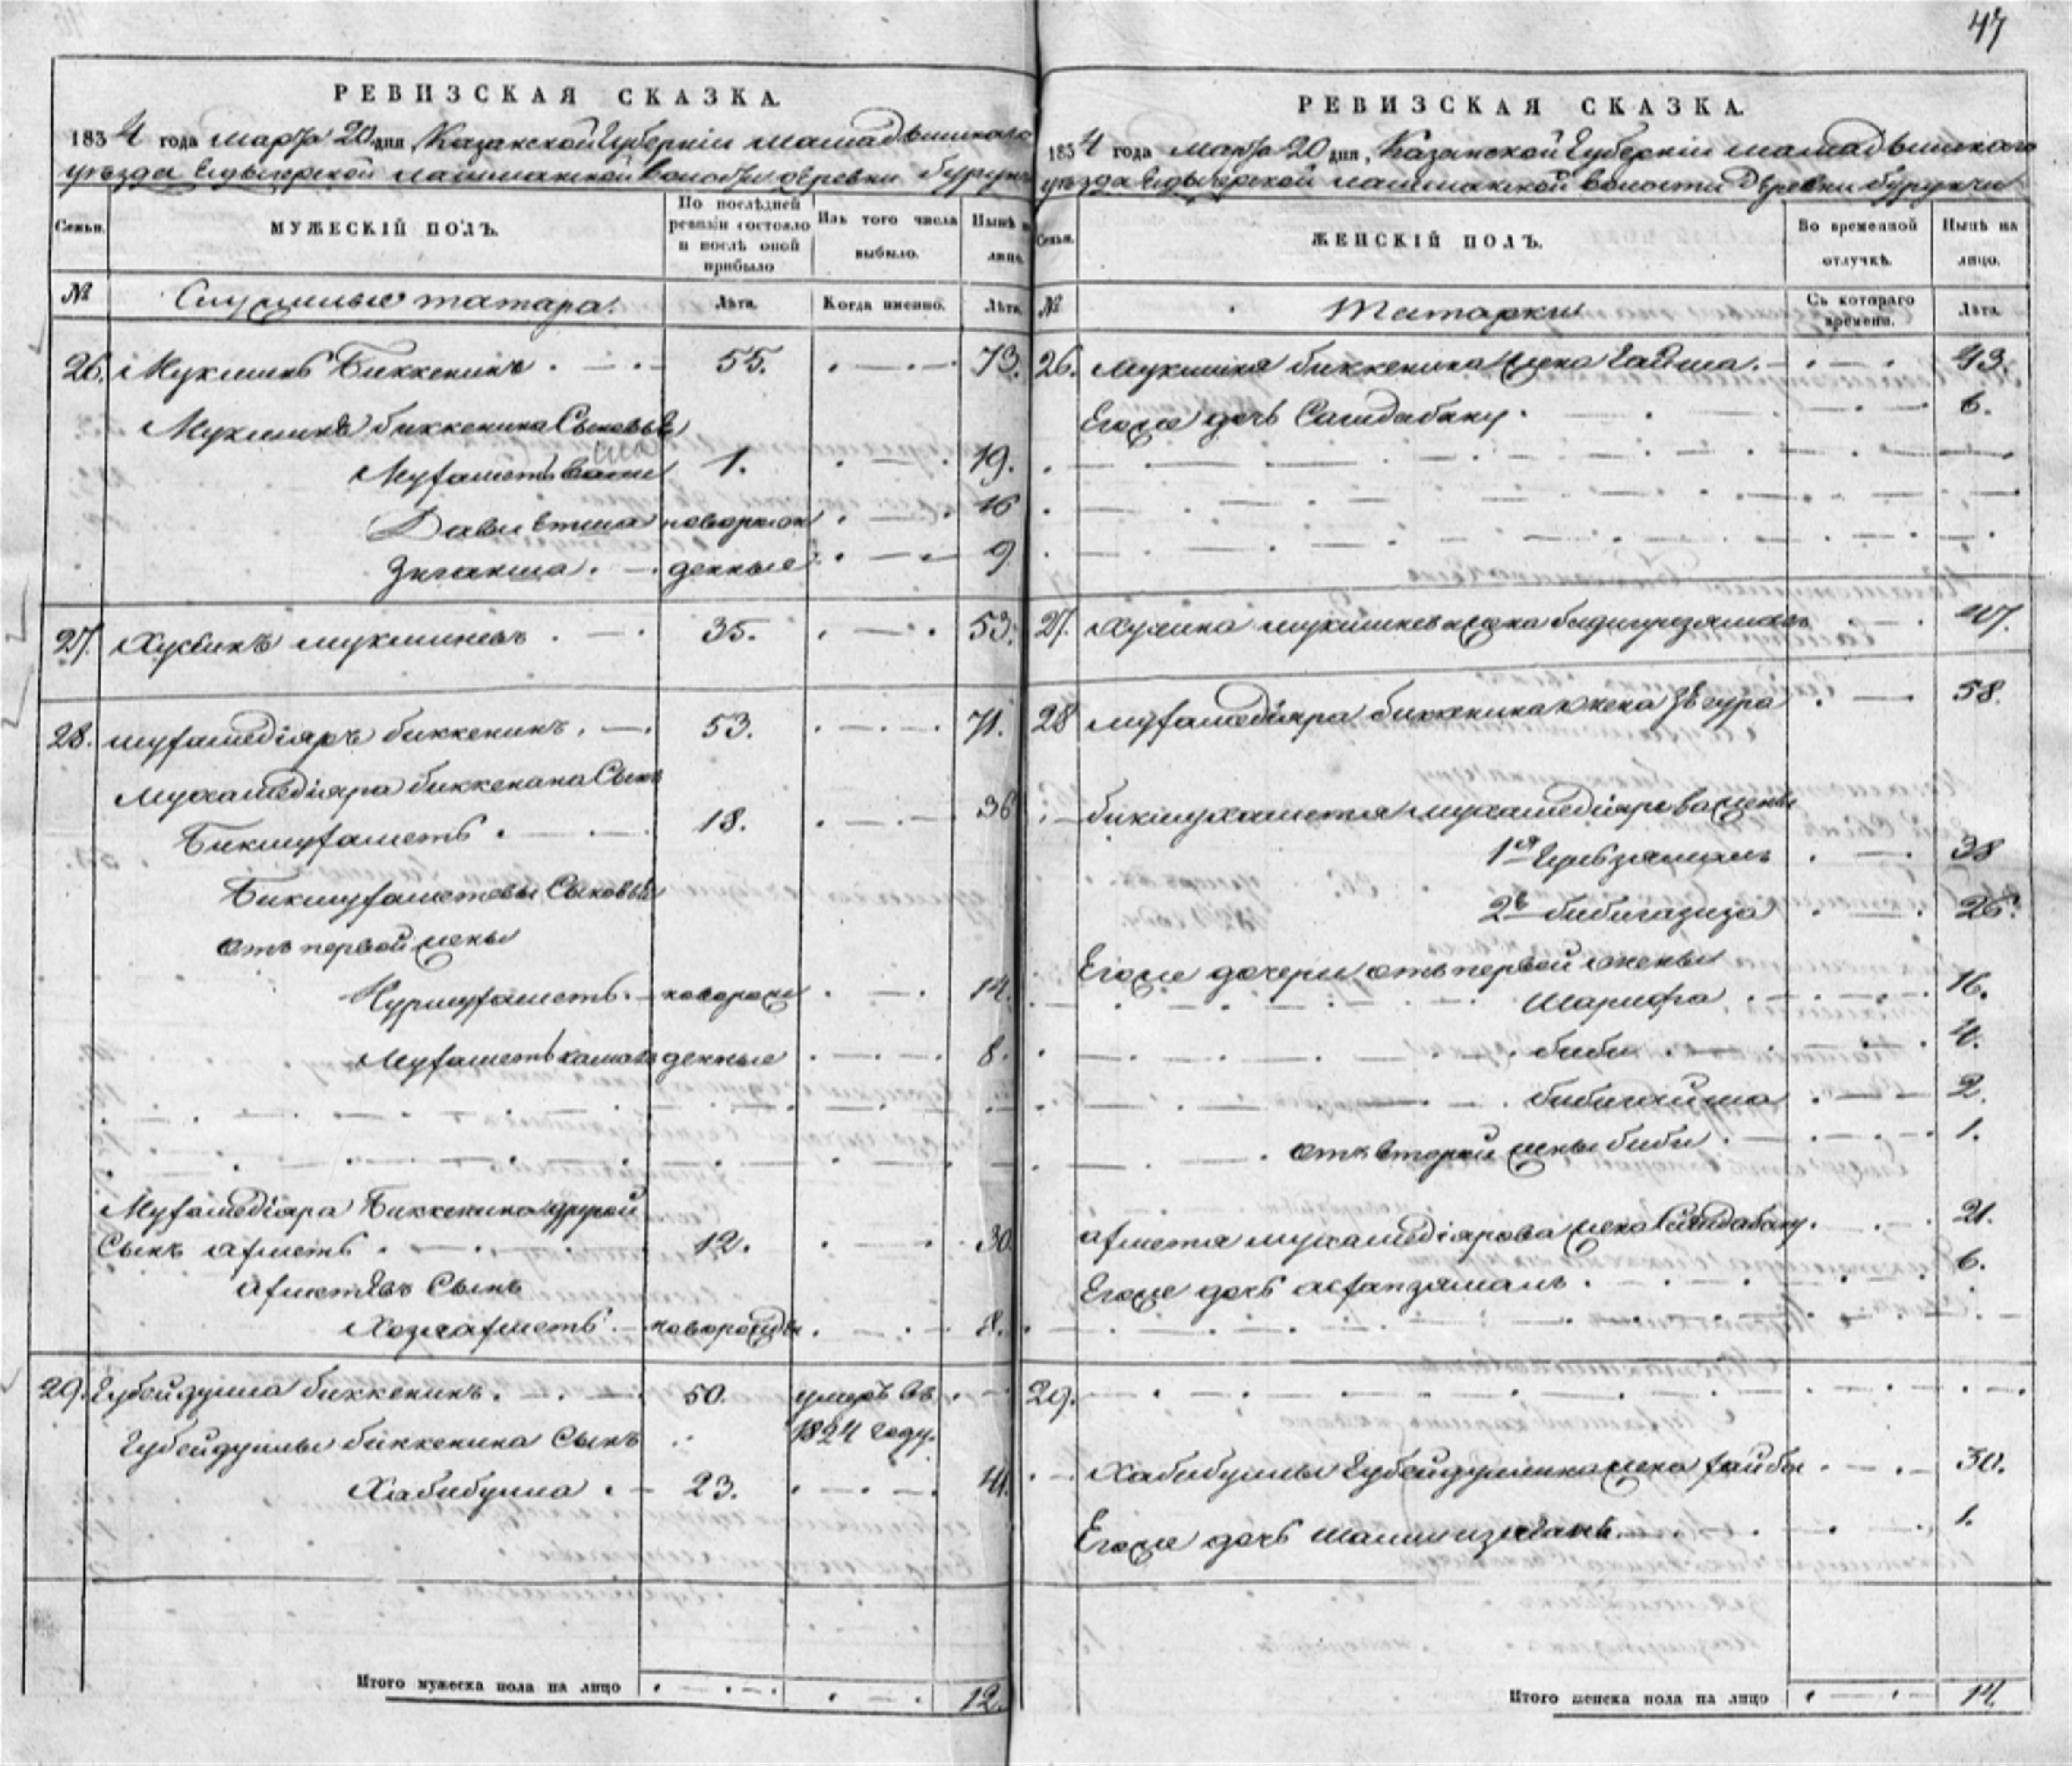 47
РЕВИЗСКАЯ СКАЗКА.
1834 года марта 20 дня, Казанской Губернiи мамадышскаго
уѣзда лашманской волости деревни бурунчи
Семьи.
МУЖЕСКIЙ ПОЛЪ.
По послѣдней ревизiи состояло и послѣ оной прибыло
Изъ того числа выбыло.
Нынѣ на лицо.
№
Служилые татара.
Лѣта.
Когда именно.
Лѣта.
26. Мукминъ Биккенинъ 55. 73.
Мукмина биккенина Сыновья
Мухаметвали 1. 19.
Давлетша новорож 16
Зиганша. денные 9
27. Хусаинъ мукминевъ 35. 53.
28. мухамедiяръ биккенинъ. 53. 71.
Мухамедiяра биккенина Сынъ
Бикмухаметъ 18. 36
Бикмухаметевы Сыновья
отъ первой жены
Нурмухаметъ. новорож 14.
Мухаметкамалъ денные 8.
Мухамедiяра Биккенина другой
Сынъ ахметъ 12. 30.
ахметевъ Сынъ
Хозяахметъ. новорожден 8.
29. Губейдулла биккенинъ. 50. умеръ въ
1824 году.
Губейдуллы биккенина Сынъ
Хабибулла 23. 41.
Итого мужеска пола на лицо 12.
РЕВИЗСКАЯ СКАЗКА.
1834 года марта 20 дня, Казанской Губернiи мамадышскаго
уѣзда лашманской волости деревни бурунчи
Семьи.
ЖЕНСКIЙ ПОЛЪ.
Во временной отлучкѣ.
Нынѣ на лицо.
№
Татарки
Съ котораго времени.
Лѣта.
26. Мукмина биккенина жена Гайша. 43.
Егоже дочь Саидабану 6.
27. Хусаина мукминева жена бадигузямалъ 47.
28 мухамедiяра биккенина жена Зѣгура 58.
бикмухаметя мухамедiярова жены
1я Гульзямалъ 38
2я бибигазиза 26.
Егоже дочери отъ первой жены
Шарифа 16.
биби 4.
бибигайша 2.
отъ второй жены биби 1.
ахметя мухамедiярова жена Саидабану. 21.
Егоже дочь асхапзямалъ. 6.
29.
Хабибуллы Губейдуллина жена 30.
Егоже дочь 1.
Итого женска пола на лицо 14.